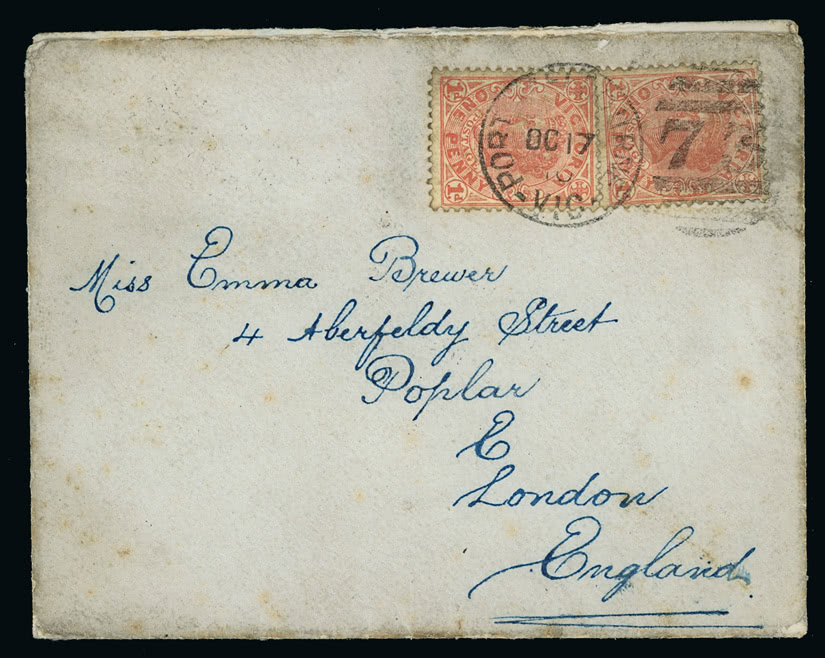 VICTORIA
ONE PENNY
1D
1D
PORT
OC 17
VIC
7
Miss Emma Brewer
4 Aberfeldy Street
Poplar
E
London
England